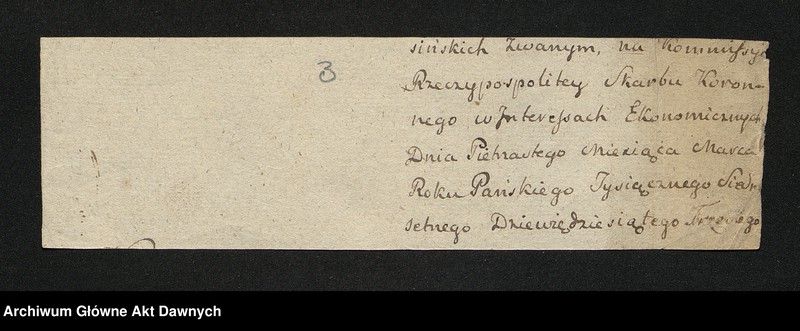 3
sińskich zwanym, na Kommissyi
Rzeczypospolitey Skarbu Koron-
nego w Interessach Ekonomicznych
Dnia Pietnastego Miesiąca Marca
Roku Pańskiego Tysiącznego Siedm-
setnego Dziewiędziesiątego Trzeciego
Archiwum Główne Akt Dawnych